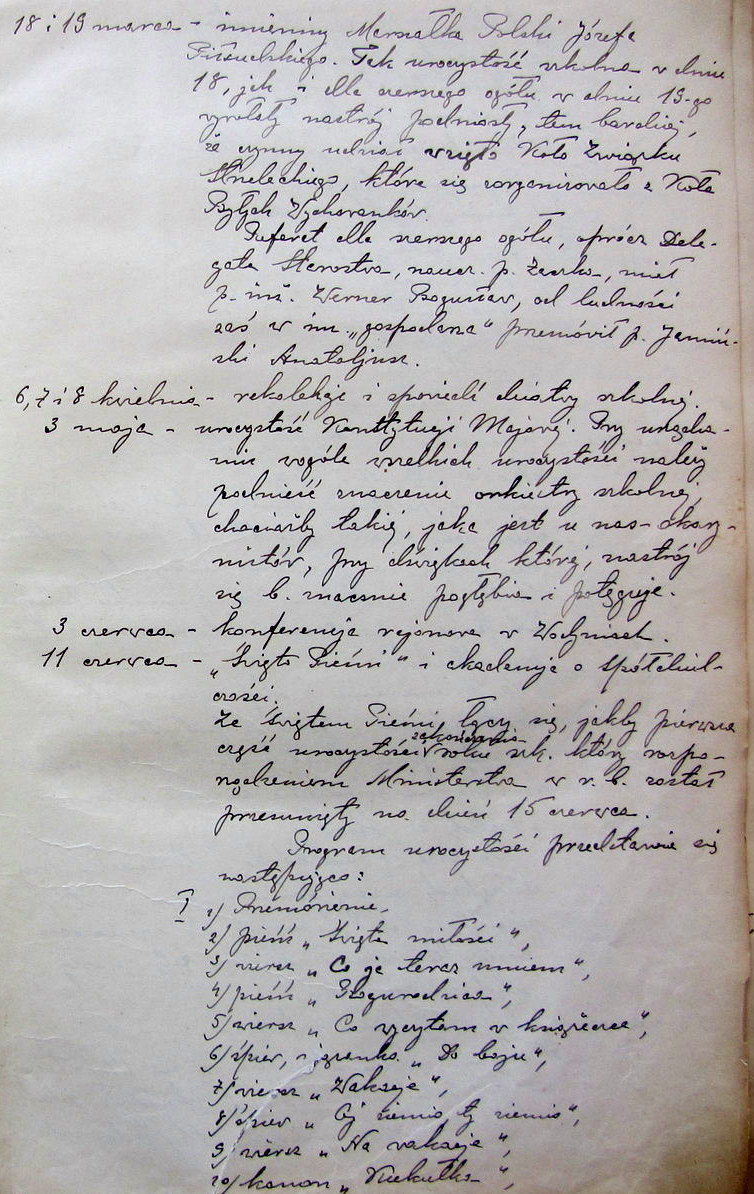 18 i 19 marca - imieniny Marszałka Polski Józefa
Piłsudskiego. Tak uroczystość szkolna w dniu
18, jak i dla szerszego ogółu w dniu 19-go
wywołały nastrój podniosły, tem bardziej,
że czynny udział wzięło Koło Związku
Strzeleckiego, które się zorganizowało z Koła
Byłych Wychowanków.
Referat dla szerszego ogółu, oprócz Dele-
gata Starostwa, naucz. p. Żaczka, miał
p. inż. Werner Bogusław, od ludności
zaś w im. „gospodarza" przemówił p. Jamiń-
ski Anatoljusz.
6, 7 i 8 kwietnia - rekolekcje i spowiedź dziatwy szkolnej.
3 maja - uroczystość Konstytucji Majowej. Przy urządza-
niu wogóle wszelkich uroczystości należy
podnieść znaczenie orkiestry szkolnej,
chociażby takiej, jaka jest u nas - okary-
nistów, przy dźwiękach której, nastrój
się b. mocno pogłębia i potęguje.
3 czerwca - konferencja rejonowa w Wodyniach.
11 czerwca - „Święto Pieśni" i akademja o spółdziel-
czości.
Ze Świętem Pieśni, łączy się, jakby pierwsza
część uroczystości zakończenia roku szk. który rozpo-
rządzeniem Ministerstwa w r. b. został
przesunięty na dzień 15 czerwca.
Program uroczystości przedstawia się
następująco:
I 1/ Przemówienie.
2/ pieśń „Święta miłości",
3/ wiersz „Co ja teraz umiem",
4/ pieśń „Bogurodzica",
5/ wiersz „Co wyczytam w książeczce",
6/ śpiew, i granko „Do boju",
7/ wiersz „Wakacje",
8/ śpiew „Oj ziemio ty ziemio",
9/ wiersz „Na wakacje",
10/ kanon „Kukułka",